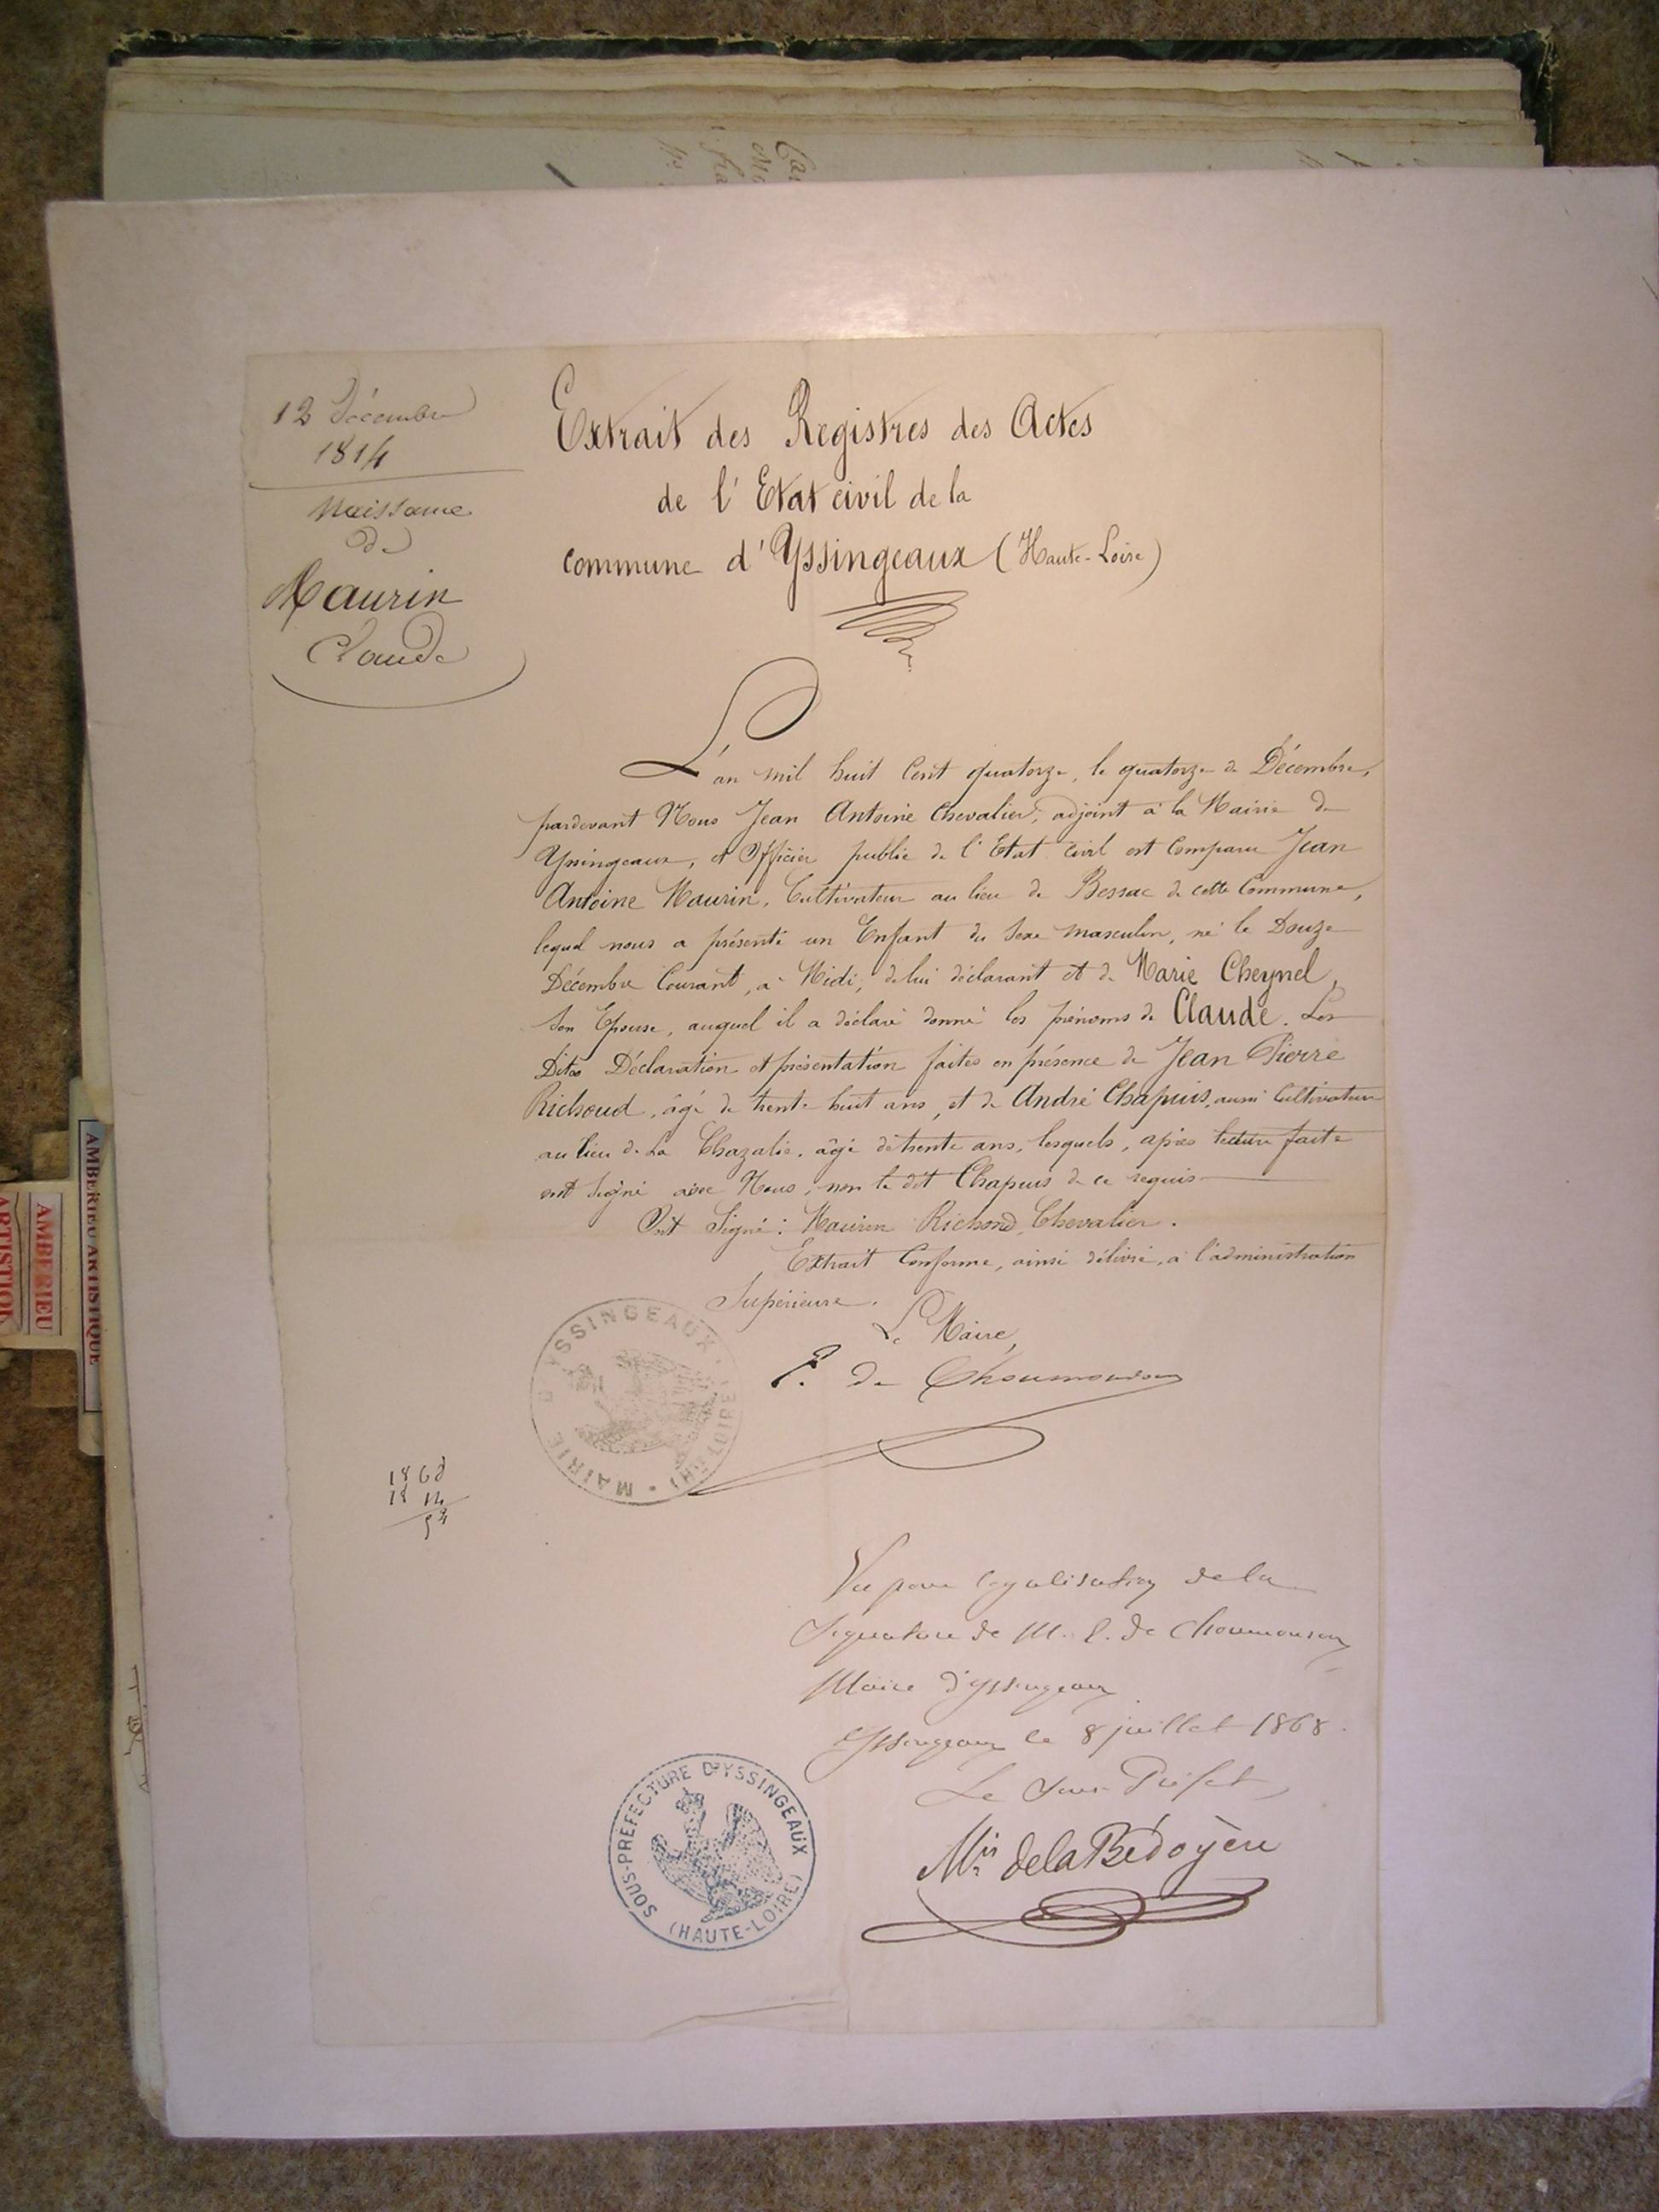 12 Décembre
1814
Naissance
de
Maurin
Claude
Extrait des Registres des Actes
de l'Etat civil de la
commune d'Yssingeaux (Haute-Loire)
L'an mil huit Cent quatorze, le quatorze de Décembre,
pardevant Nous Jean Antoine Chevalier, adjoint à la Mairie de
Yssingeaux, et Officier public de l'Etat civil est Comparu Jean
Antoine Maurin, Cultivateur au lieu de Bessac de cette Commune,
lequel nous a présenté un Enfant du Sexe masculin, né le Douze
Décembre Courant, à Midi, de lui déclarant et de Marie Cheynel,
son Epouse, auquel il a déclaré donné les prénoms de Claude. Les
Dites Déclaration et présentation faites en présence de Jean Pierre
Richoud, âgé de trente huit ans, et de André Chapuis, aussi Cultivateur
au lieu de La Chazalie, âgé de trente ans, lesquels, après lecture faite
ont Signé avec Nous, non le dit Chapuis de ce requis
Ont Signé: Maurin Richond, Chevalier.
Extrait Conforme, ainsi délivré, à l'administration
Supérieure.
Le Maire,
de Choumouroux
MAIRIE D'YSSINGEAUX (Hte LOIRE)
1868
18 14
54
Vu pour légalisation de la
Signature de M. E. de Choumouroux
Maire d'Yssingeaux
Yssingeaux le 8 juillet 1868.
Le Sous-Préfet,
Mis de la Bédoyère
SOUS-PREFECTURE D'YSSINGEAUX (HAUTE-LOIRE)
AMBERIEU ARTISTIQUE
AMBERIEU
ARTISTIQUE